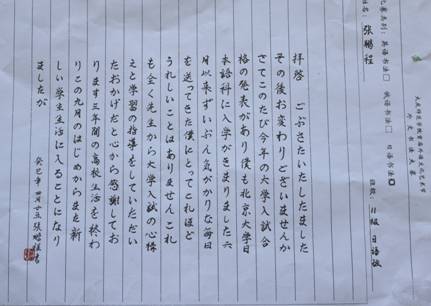 外文书法大赛
英语书法□ 俄语书法□ 日语书法
姓名：张鹏程 班级：11级 日语
拝啓 ごぶさたいたしました
その後お変わりございませんか
さてこのたび今年の大学入試合
格の発表があり僕も北京大学日
本語科に入学がきまりました六
月以来ずいぶん気がかりな毎日
を送ってきた僕にとってこれほど
うれしいことはありませんこれ
も全く先生から大学入試の心構
えと学習の指導をしていただい
たおかげだと心から感謝してお
ります三年間の高校生活を終わ
りこの九月のはじめからまた新
しい学生生活に入ることになり
ましたが
癸巳年 四月廿五 張鵬程書